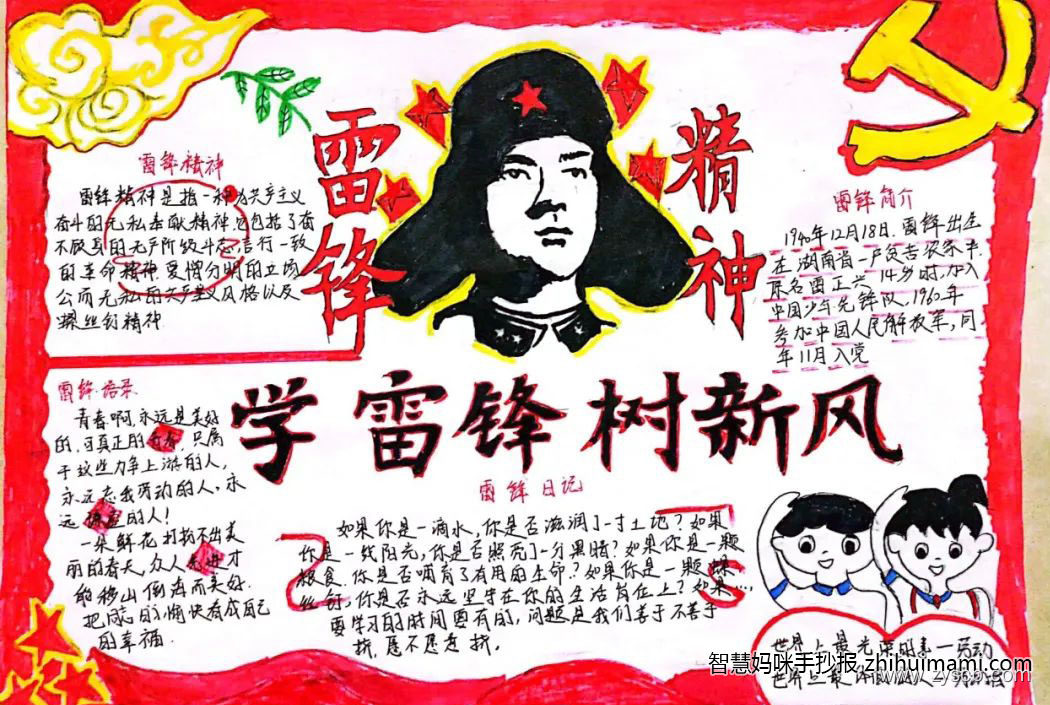 雷锋精神
学雷锋树新风
雷锋精神
雷锋精神是指一种为共产主义
奋斗的无私奉献精神.它包括了奋
不顾身的无产阶级斗志,言行一致
的革命精神.爱憎分明的立场
公而无私的共产主义风格以及
螺丝钉精神
雷锋简介
1940年12月18日.雷锋出生
在湖南省一户贫苦农家中.
原名雷正兴.14岁时,加入
中国少年先锋队.1960年
参加中国人民解放军,同
年11月入党
雷锋语录
青春啊,永远是美好
的,可真正的青春,只属
于这些力争上游的人,
永远忘我劳动的人,永
远谦虚的人!
一朵鲜花打扮不出美
丽的春天,众人先进才
能移山倒海而美好.
的愉快看成自己
的幸福.
雷锋日记
如果你是一滴水,你是否滋润了一寸土地?如果
你是一线阳光,你是否照亮了一分黑暗?如果你是一颗
粮食.你是否哺育了有用的生命?如果你是一颗螺
丝钉,你是否永远坚守在你的生活岗位上?如果...
要学习的时间是有的,问题是我们善于不善于
挤,愿不愿意挤.
世界上最光荣的事—劳动
世界上最
智慧妈咪手抄报 zhihuimami.com